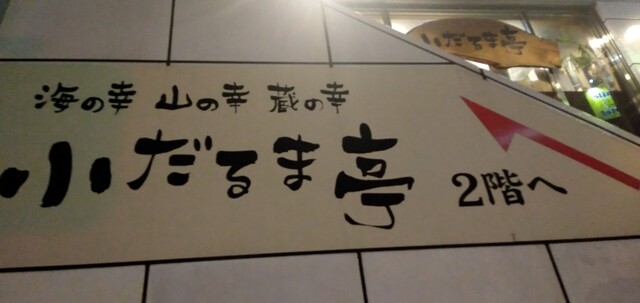 小だるま亭
海の幸 山の幸 蔵の幸
小だるま亭
2階へ